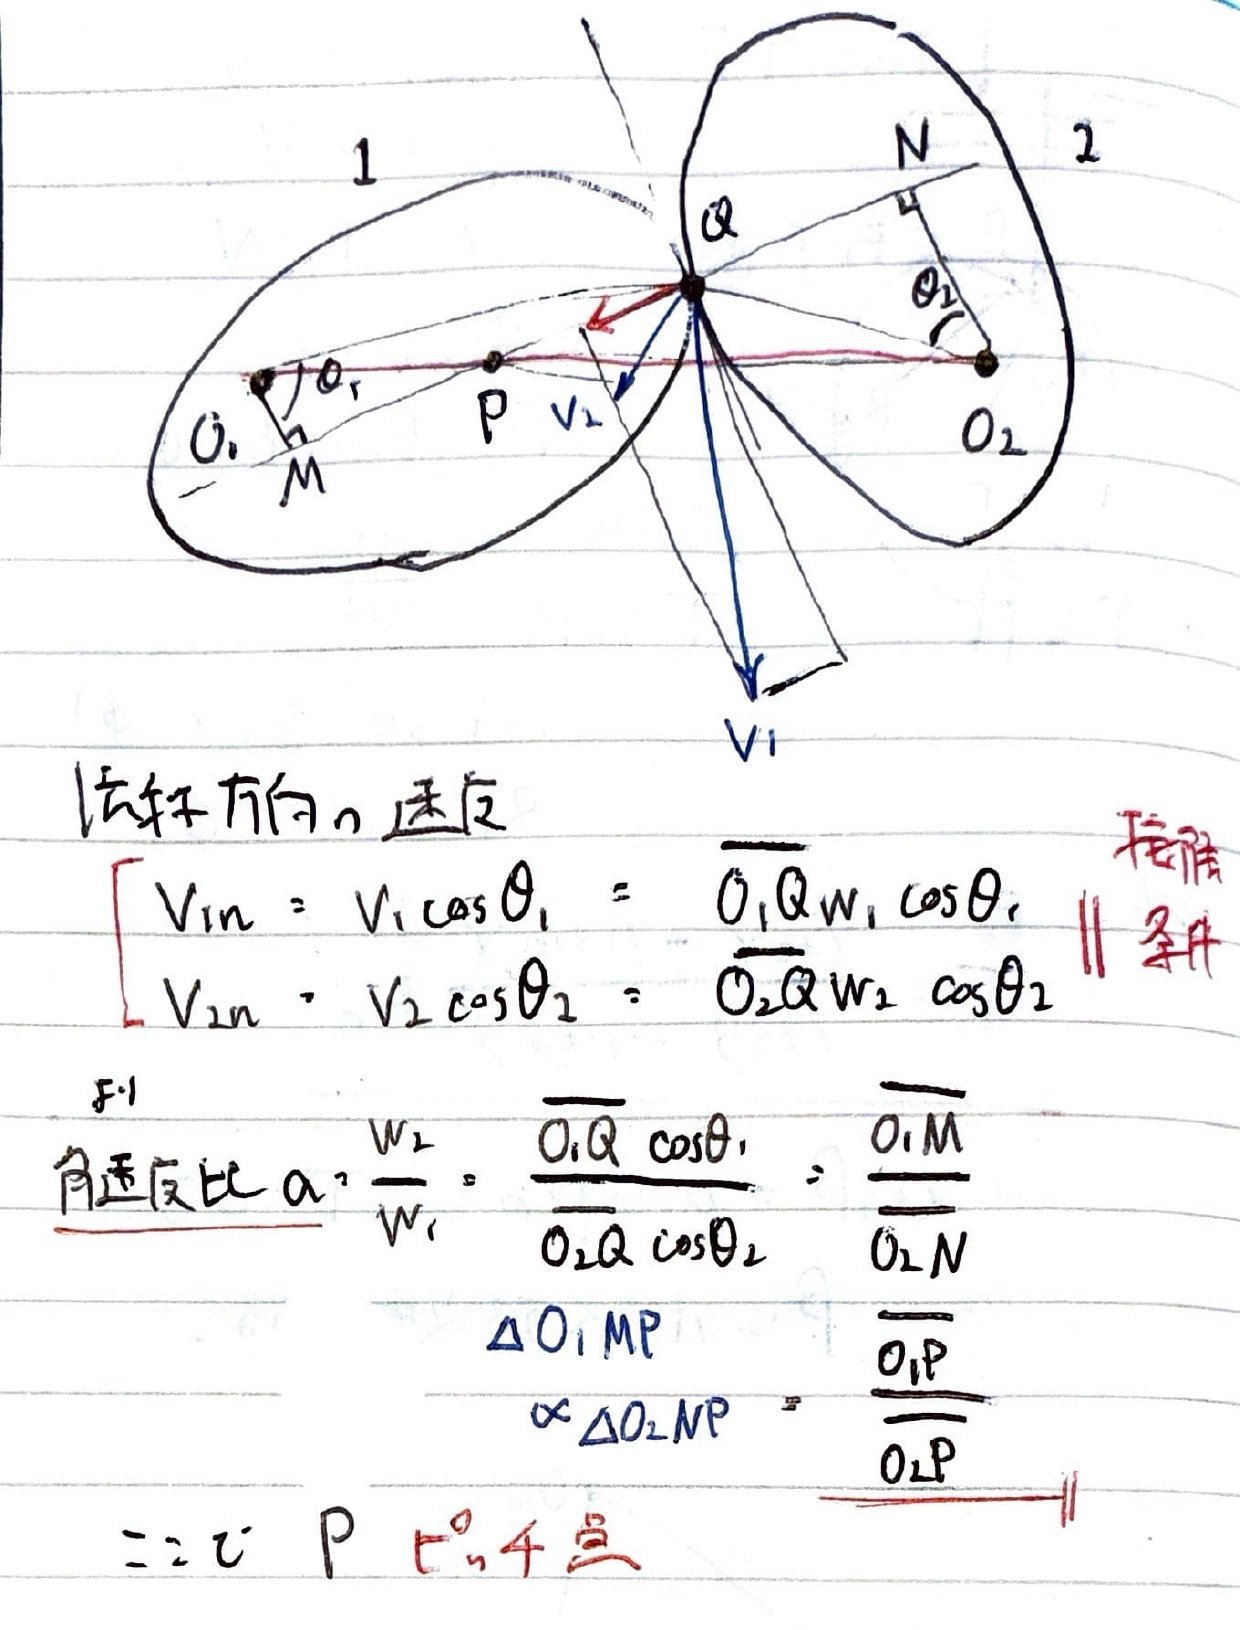 1
2
N
Q
θ₂
θ₁
P
V₂
O₁
M
O₂
V1
法線方向の速度
V₁n = V₁ cosθ₁ = O̅₁Q̅ W₁ cosθ₁
V₂n = V₂ cosθ₂ = O̅₂Q̅ W₂ cosθ₂
接触
条件
より
角速度比 a = W₂/W₁ = O̅₁Q̅ cosθ₁ / O̅₂Q̅ cosθ₂ = O̅₁M̅ / O̅₂N̅
△O₁MP
∝ △O₂NP = O̅₁P̅ / O̅₂P̅
ここで P ピッチ点